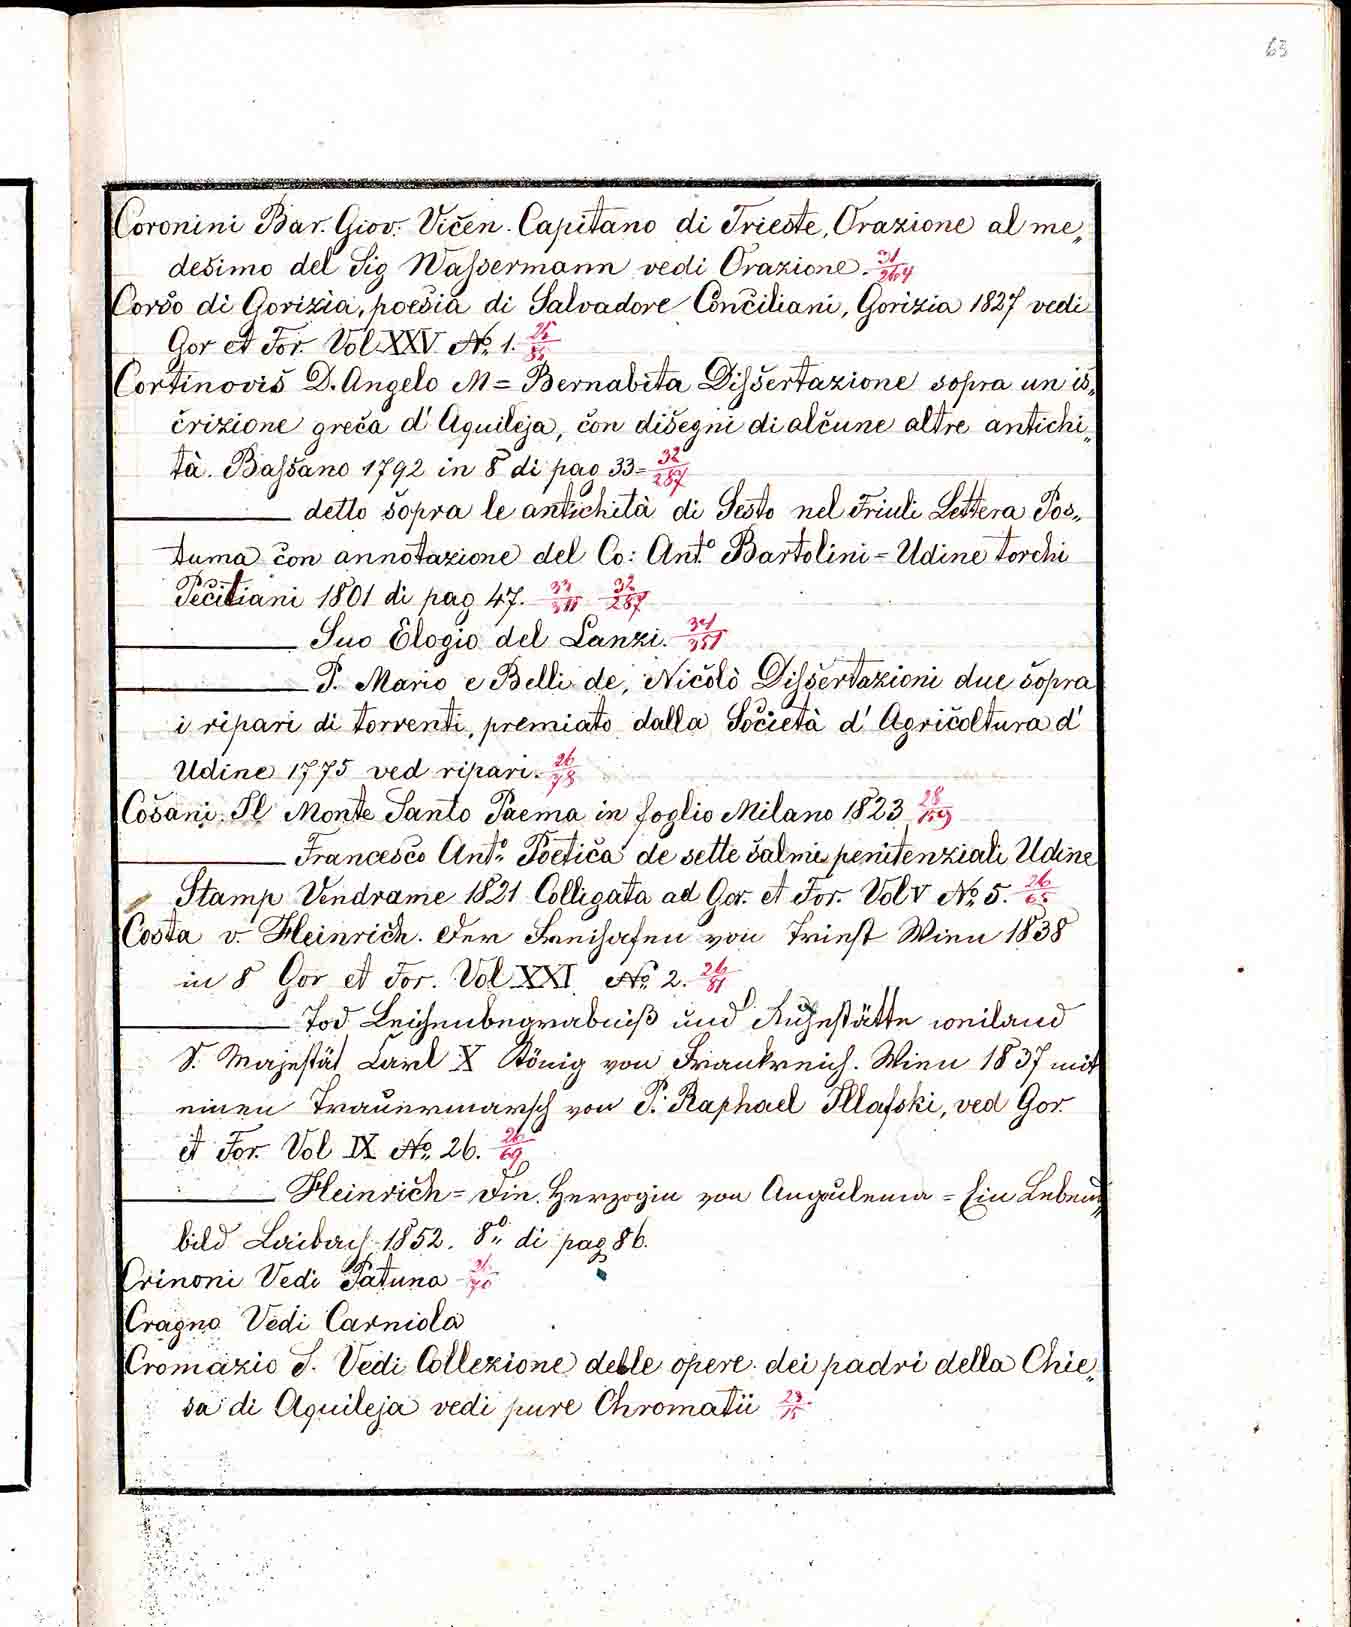 63
Coronini Bar. Giov. Vicen. Capitano di Trieste, Orazione al me„
desimo del Sig Wassermann vedi Orazione. 31/264
Corso di Gorizia, poesia di Salvadore Conciliani, Gorizia 1827 vedi
Gor et For. Vol XXV No. 1. 25/85
Cortinovis D. Angelo M = Bernabita Dissertazione sopra un is„
crizione greca d' Aquileja, con disegni di alcune altre antichi„
tà. Bassano 1792 in 8 di pag 33= 32/287
detto sopra le antichità di Sesto nel Friuli Lettera Pos„
tuma con annotazione del Co: Anto. Bartolini = Udine torchi
Pecitiani 1801 di pag 47. 33/311 32/287
Suo Elogio del Lanzi. 34/351
P. Mario e Belli de, Nicolò Dissertazioni due sopra
i ripari di torrenti, premiato dalla Società d' Agricoltura d'
Udine 1775 ved ripari. 26/78
Cosani. Il Monte Santo Poema in foglio Milano 1823 28/159
Francesco Anto. Poetica de sette salmi penitenziali Udine
Stamp Vendrame 1821 Colligata ad Gor. et For. Vol V No. 5. 26/65
Costa v. Heinrich. Der Freihafen von Triest Wien 1838
in 8 Gor et For. Vol XXI No. 2. 26/81
Tod Leichenbegrabniß und Ruhestätte weiland
S. Majestät Carl X König von Frankreich. Wien 1837 mit
einen Trauermarsch von P. Raphael Illafski, ved Gor.
et For. Vol IX No. 26. 26/69
Heinrich = Die Herzogin von Angulema = Ein Lebens„
bild Laibach 1852. 8o. di pag 86.
Crinoni Vedi Patuna /70
Cragno Vedi Carniola
Cromazio S. Vedi Collezione delle opere dei padri della Chie„
sa di Aquileja vedi pure Chromatii 29/15